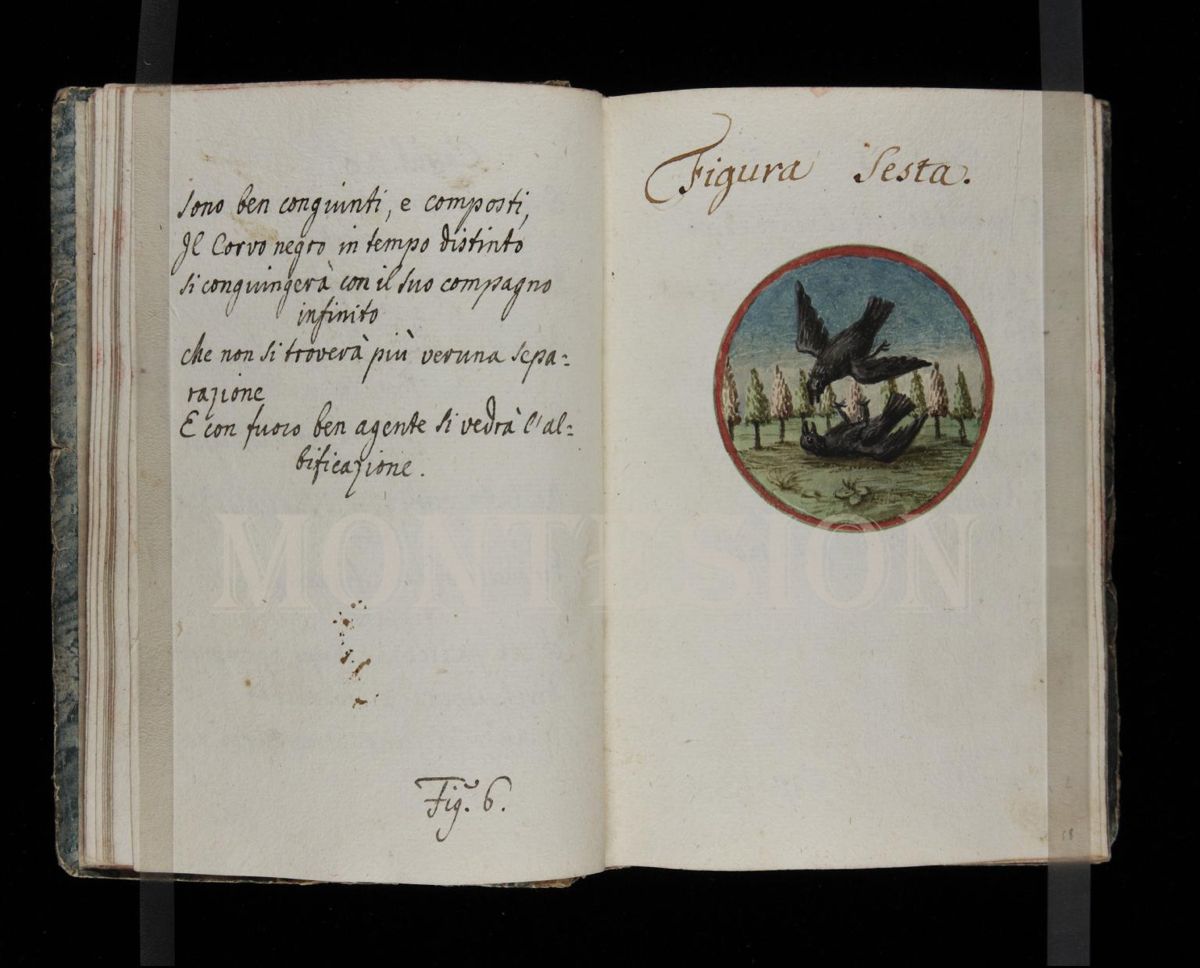 sono ben congiunti, e composti,
Il Corvo negro in tempo distinto
si congiungerà con il suo compagno
infinito
che non si troverà più veruna sepa=
razione
E con fuoco ben agente si vedrà l'al=
bificazione.
Fig. 6.
Figura Sesta.
MONTESION
18